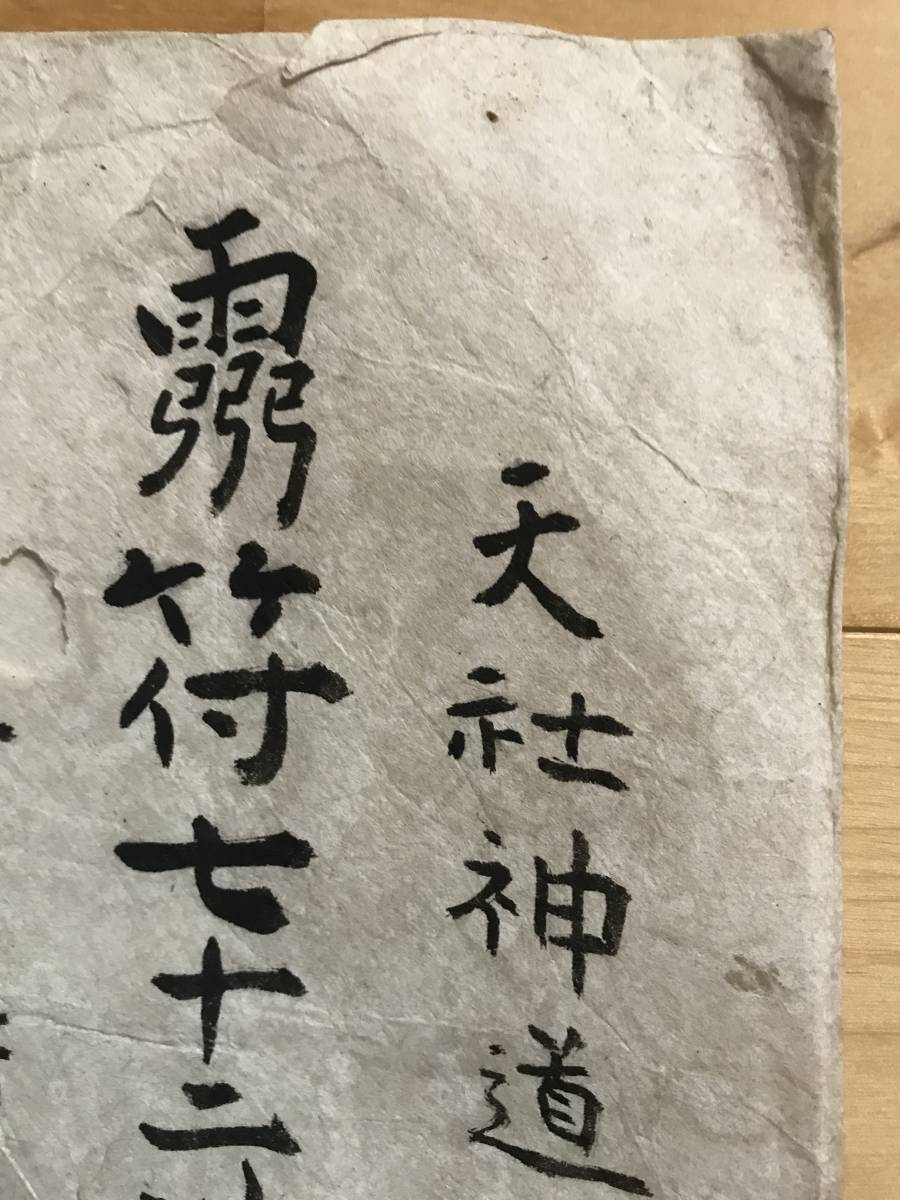 天社神道
靈符七十二